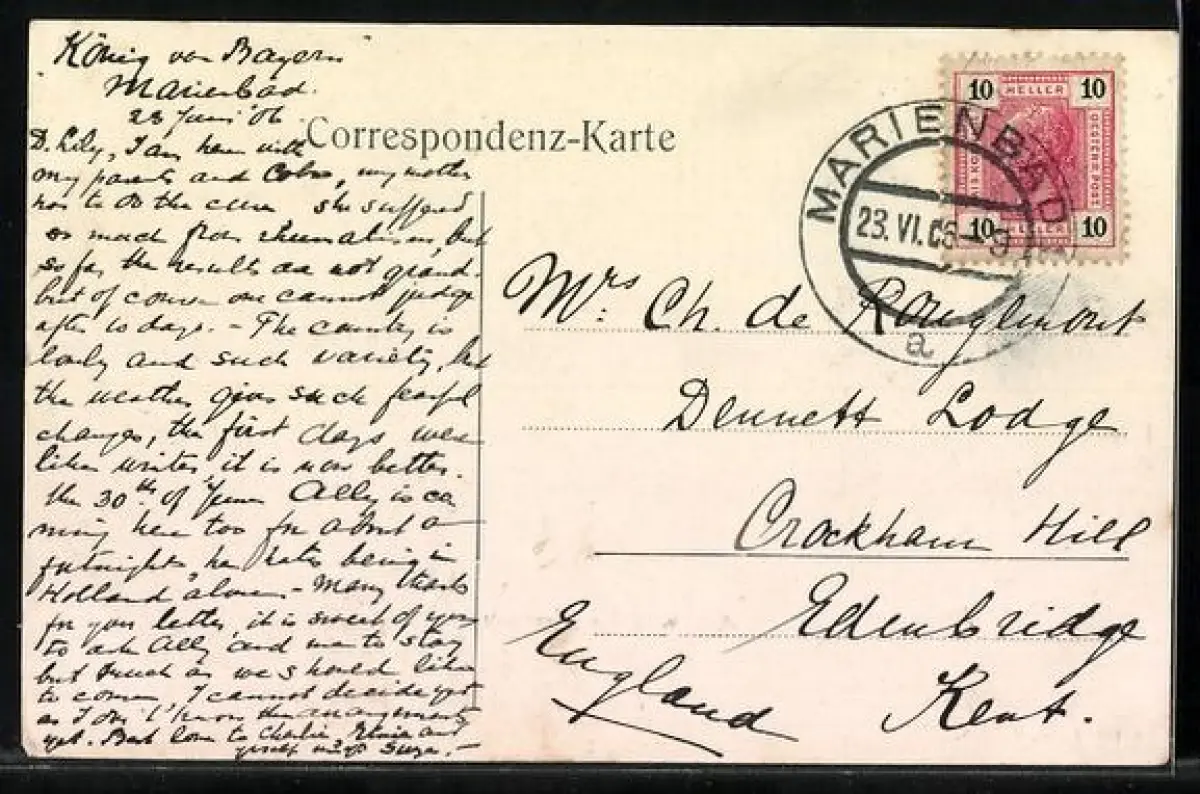 König von Bayern
Marienbad.
23 Juni '06
D. Lily, I am here with
my parents and, my mother
has to do the cure she suffered
so much from rheumatism, but
so far the results are not grand.
but of course one cannot judge
after 10 days. - The country is
lovely and such variety, but
the weather gives such fearful
changes, the first days were
like winter it is now better.
the 30th of June Ally is co
ming here too for about a
fortnight, he hates being in
Holland alone - Many thanks
for your letter, it is sweet of you
to ask Ally and me to stay
but much as we should like
to come, I cannot decide yet
as I don't know the arrangements
yet. Best love to Charlie, and
yrself
Correspondenz-Karte
10 HELLER 10
10 HELLER 10
OESTERR. POST
MARIENBAD
23. VI. 06
a
Mrs: Ch. de Rougemont
Dennett Lodge
Crockham Hill
Edenbridge
Kent.
England